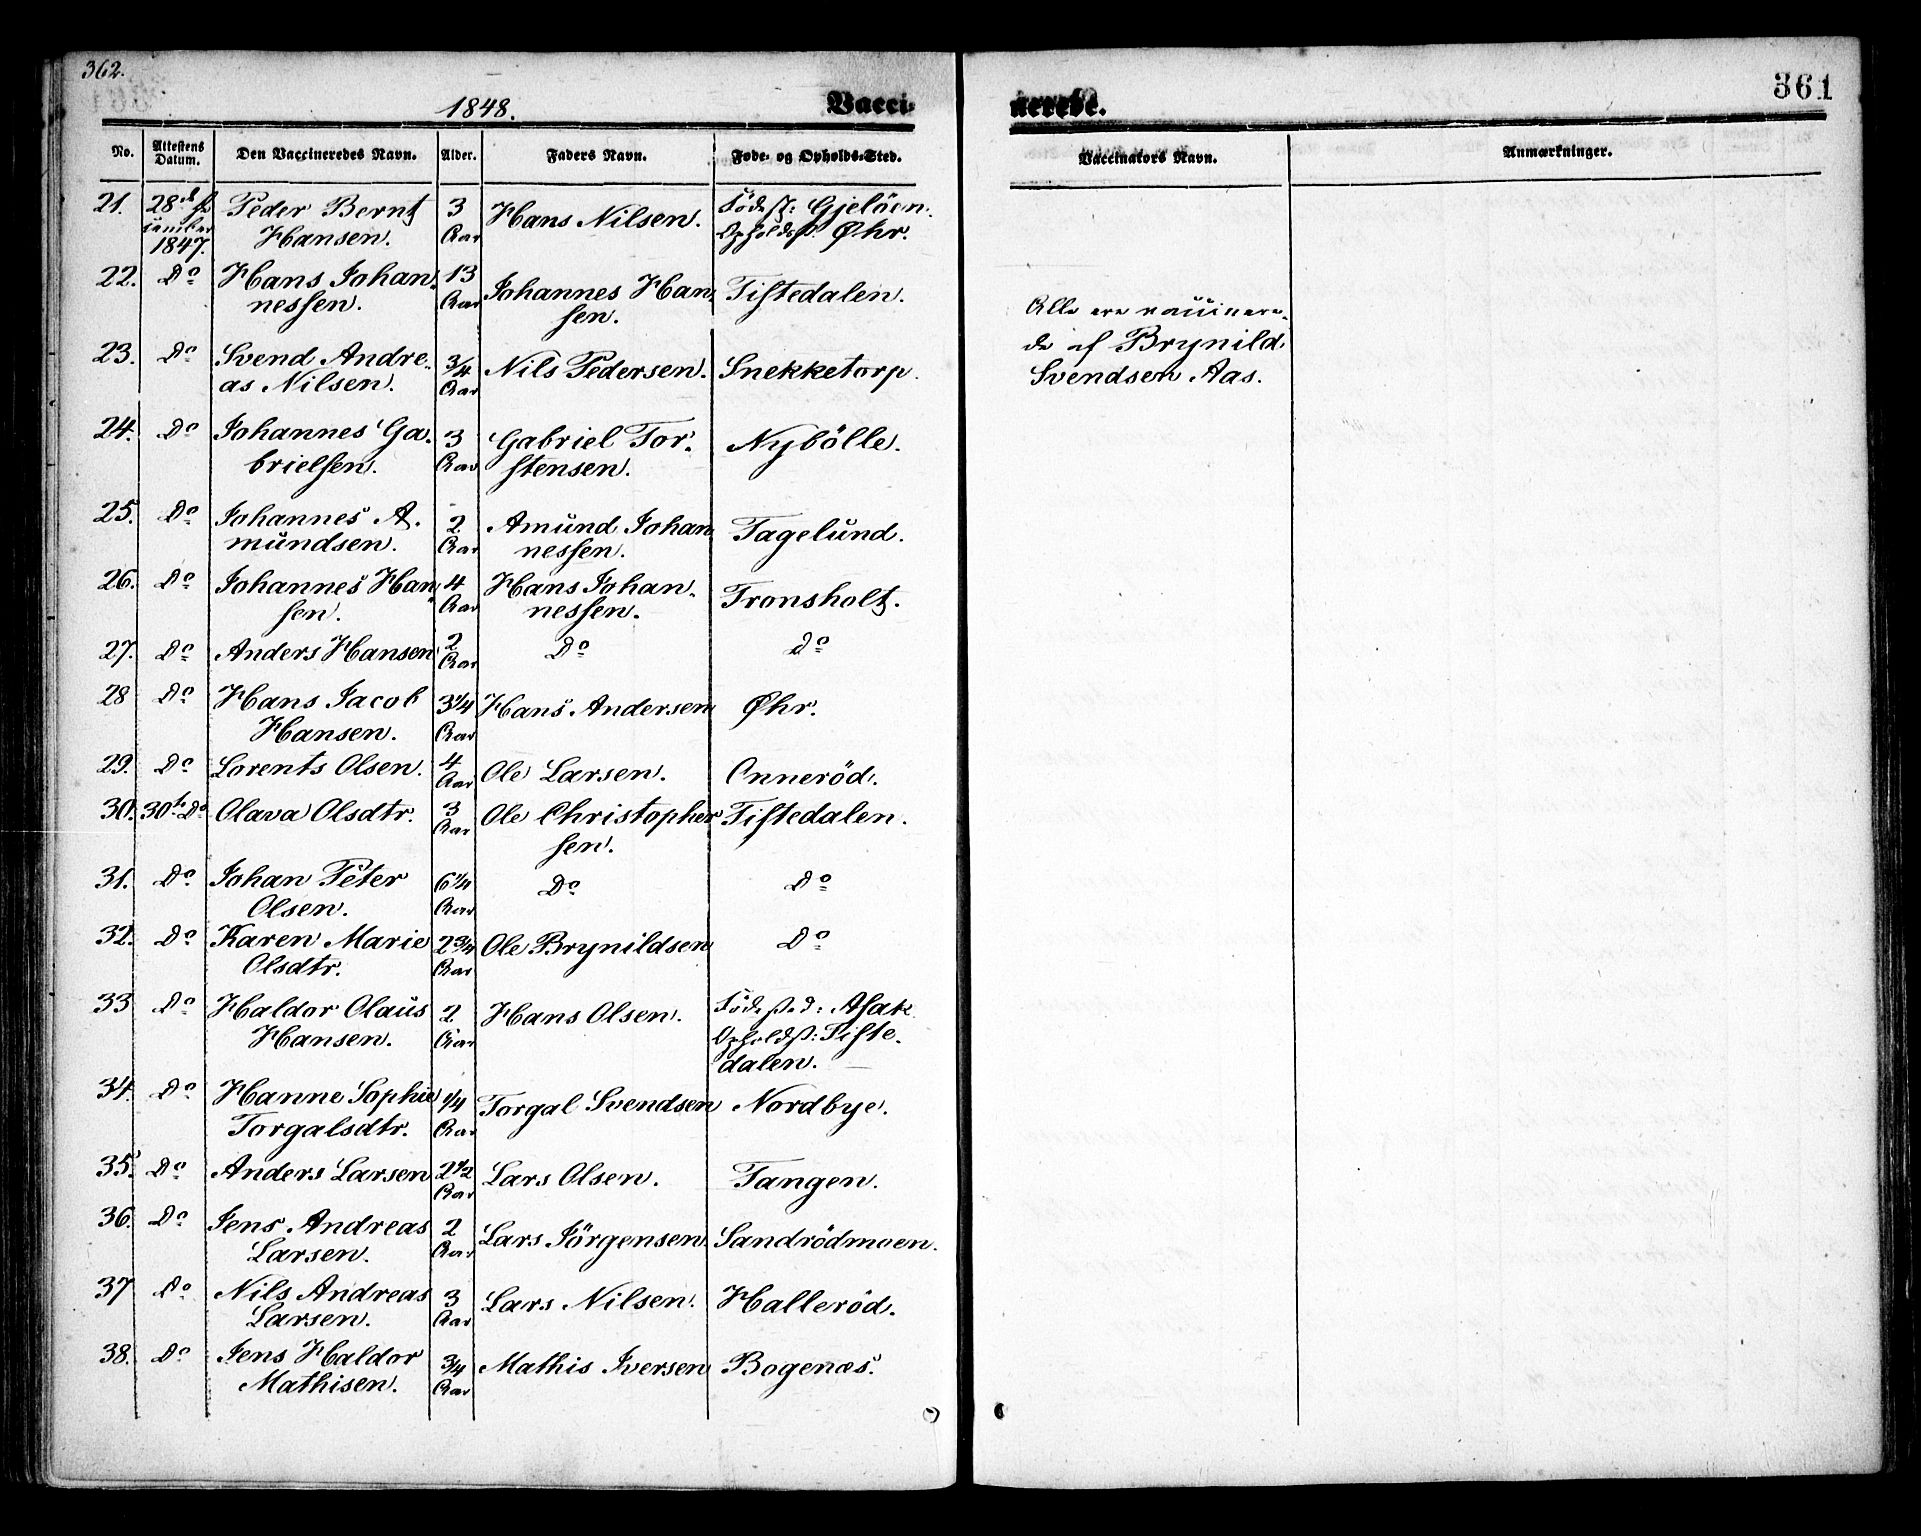 362.
1848.
Vacci-
No. Attestens Datum. Den Vaccineredes Navn. Alder. Faders Navn. Føde- og Opholds-Sted.
21. 28de Peder Bernt 3 Hans Nilsen. Födest: Gjelöen.
cember Hansen. Aar Opholdsst. Øhr.
1847.
22. Do Hans Johan- 13 Johannes Han- Tistedalen.
nessen. Aar sen.
23. Do Svend Andre- 3/4 Nils Pedersen. Snekketorp.
as Nilsen. Aar
24. Do Johannes Ga- 3 Gabriel Tor- Nybölle.
brielsen. Aar stensen.
25. Do Johannes A- 2 Amund Johan Tagelund.
mundsen. Aar nessen.
26. Do Johannes Han- 4 Hans Johan- Tronsholt.
sen. Aar nessen.
27. Do Anders Hansen 2 Aar Do do
28 Do Hans Jacob 3 1/4 Hans Andersen Øhr.
Hansen. Aar
29. Do Lorents Olsen. 4 Aar Ole Larsen. Onneröd.
30. 30te Do Olava Olsdtr. 3 Aar Ole Christopher Tistedalen.
sen.
31. Do Johan Peter 6 1/4 Do Do
Olsen. Aar
32. Do Karen Marie 2 3/4 Ole Brynildsen Do
Olsdtr. Aar
33 Do Haldor Olaus 2 Hans Olsen. Födested: Asak
Hansen. Aar Opholdsst: Tiste-
dalen.
34. Do Hanne Sophie 1/4 Torgal Svendsen Nordbye.
Torgalsdtr. Aar
35. Do Anders Larsen 2 1/2 Aar Lars Olsen. Tangen.
36. Do Jens Andreas 2 Lars Jörgensen. Sandrödmoen.
Larsen. Aar
37 Do Nils Andreas 3 Lars Nilsen. Halleröd.
Larsen. Aar
38. Do Jens Haldor 3/4 Mathis Iversen Bogenæs.
Mathisen. Aar
361
nerede.
Vaccinators Navn. Anmærkninger.
Alle ere vaccinere-
de af Brynild
Svendsen Aas.